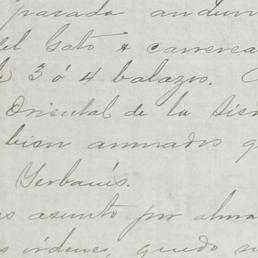 pasada andun
del Gato & carrerea
3 ó 4 balazos.
Oriental de la Sier
bien armados q
Yerbanís.
es asunto por alma
s órdenes, quedo